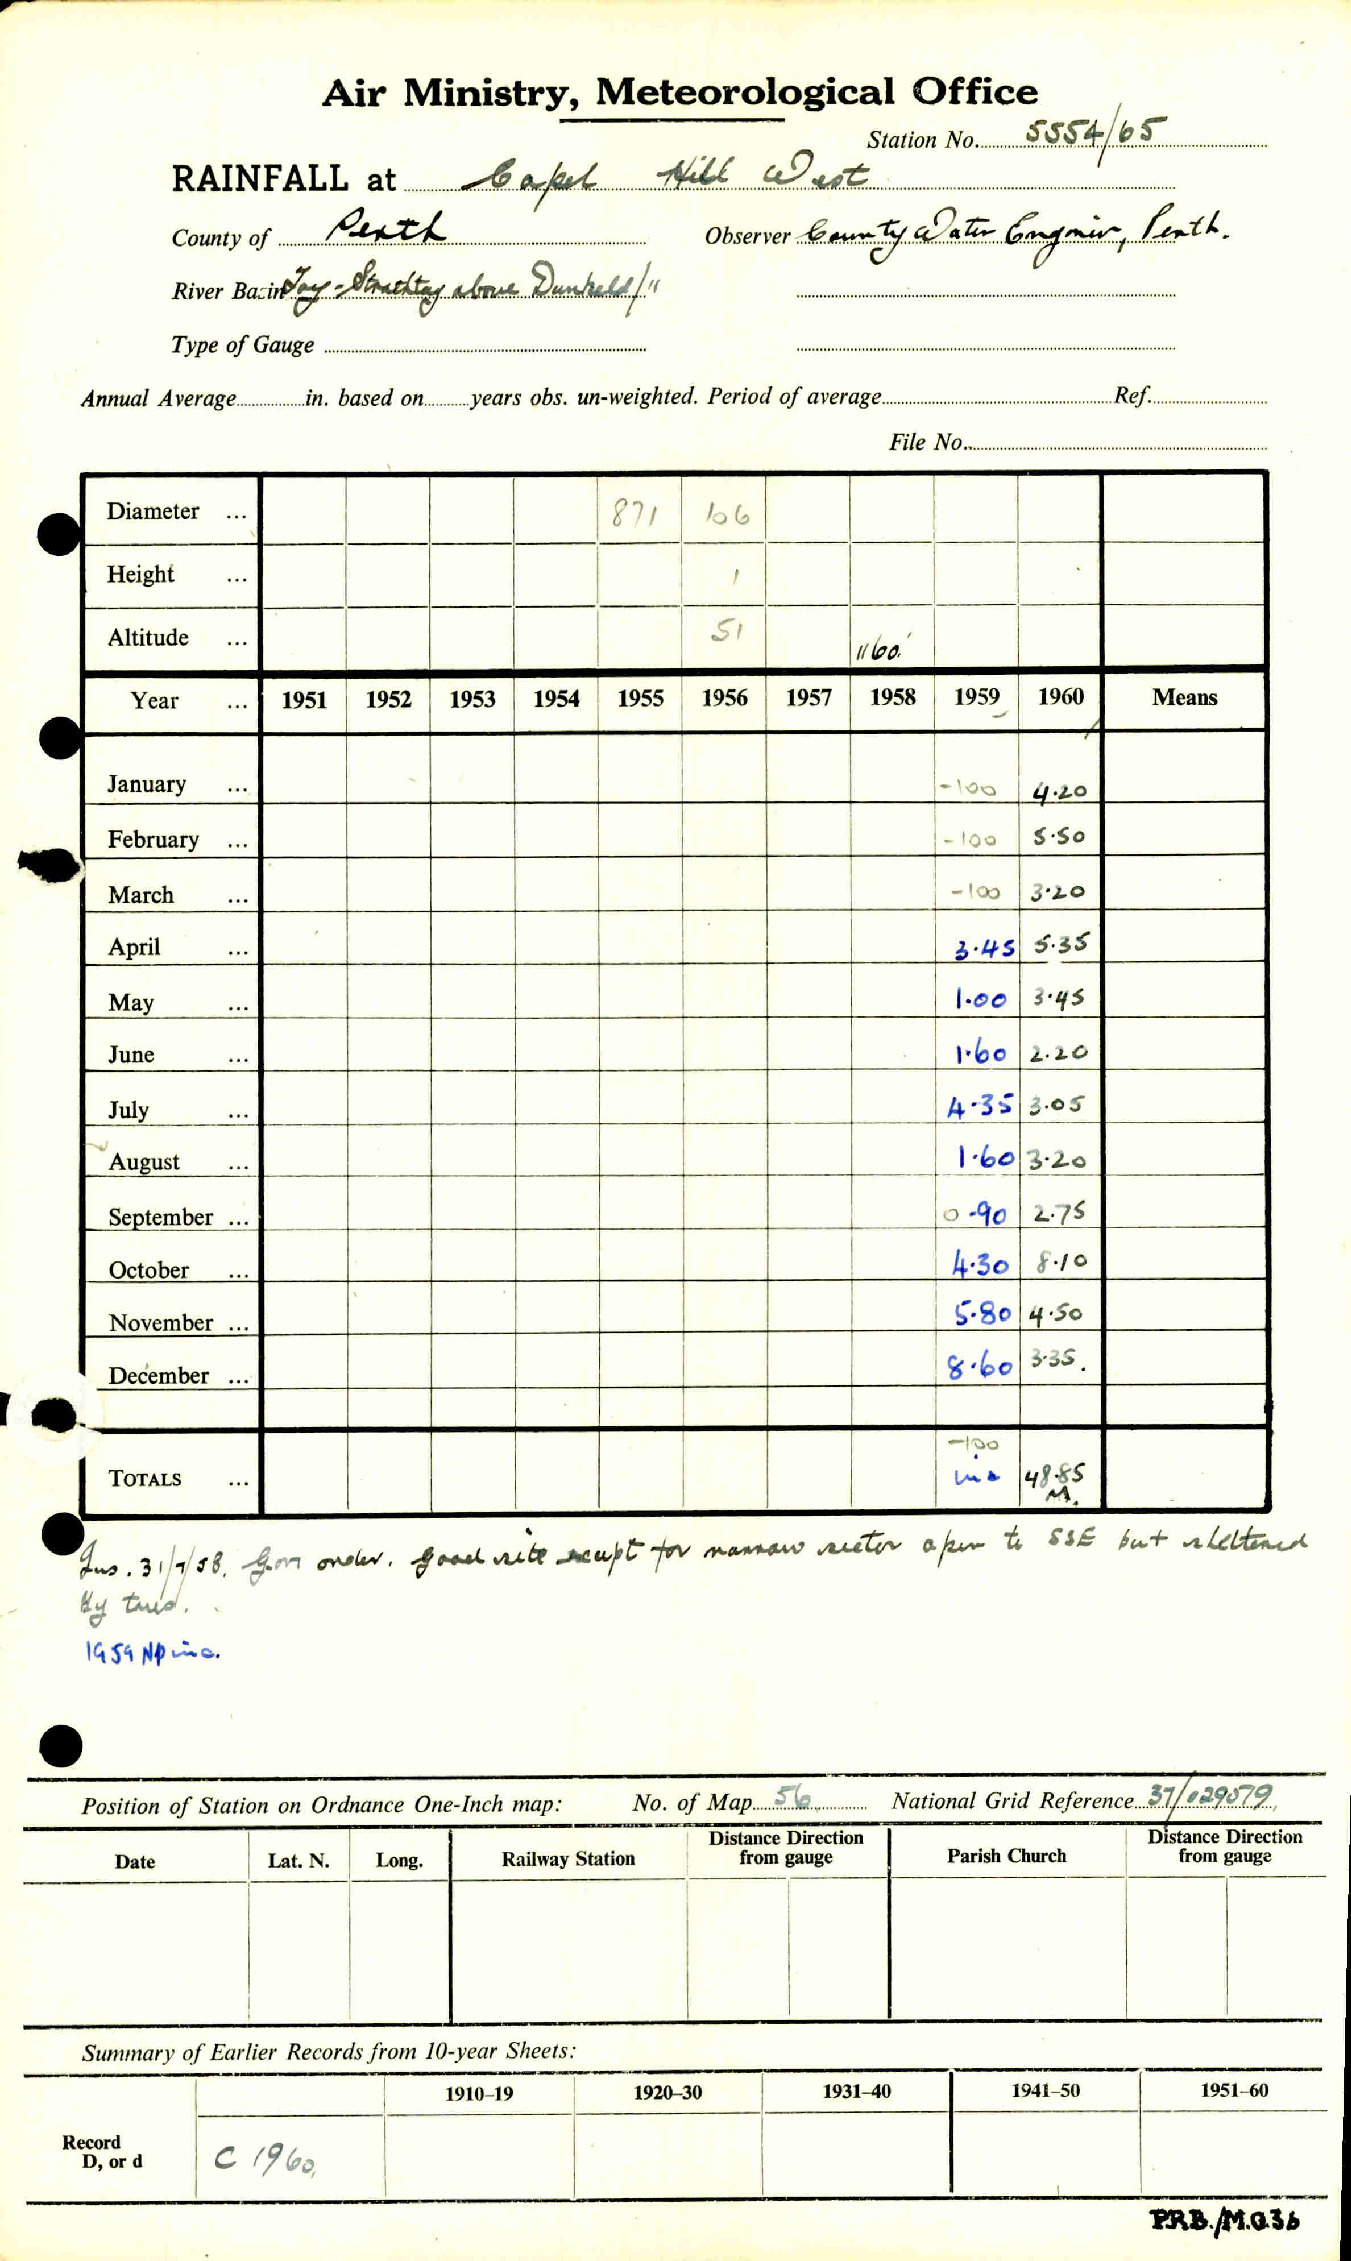 Air Ministry, Meteorological Office
Station No. 5554/65
RAINFALL at Capel Hill West
County of Perth Observer County Water Engineer, Perth.
River Basin Tay-Strathtay above Dunkeld/"
Type of Gauge
Annual Average in. based on years obs. un-weighted. Period of average Ref.
File No.
Diameter ... 871 106
Height ... 1
Altitude ... 51 1160'
Year ... 1951 1952 1953 1954 1955 1956 1957 1958 1959 1960 Means
January ... -100 4.20
February ... -100 5.50
March ... -100 3.20
April ... 3.45 5.35
May ... 1.00 3.45
June ... 1.60 2.20
July ... 4.35 3.05
August ... 1.60 3.20
September ... 0.90 2.75
October ... 4.30 8.10
November ... 5.80 4.50
December ... 8.60 3.35.
-100
TOTALS ... inc 48.85
M.
Ins. 31/7/58. Good site except for narrow sector open to SSE but sheltered
by trees.
1959 NP inc.
Position of Station on Ordnance One-Inch map: No. of Map 56 National Grid Reference 37/029079
Date Lat. N. Long. Railway Station Distance Direction from gauge Parish Church Distance Direction from gauge
Summary of Earlier Records from 10-year Sheets:
1910–19 1920–30 1931–40 1941–50 1951–60
Record
D, or d C 1960.
P.R.B./M.O.36